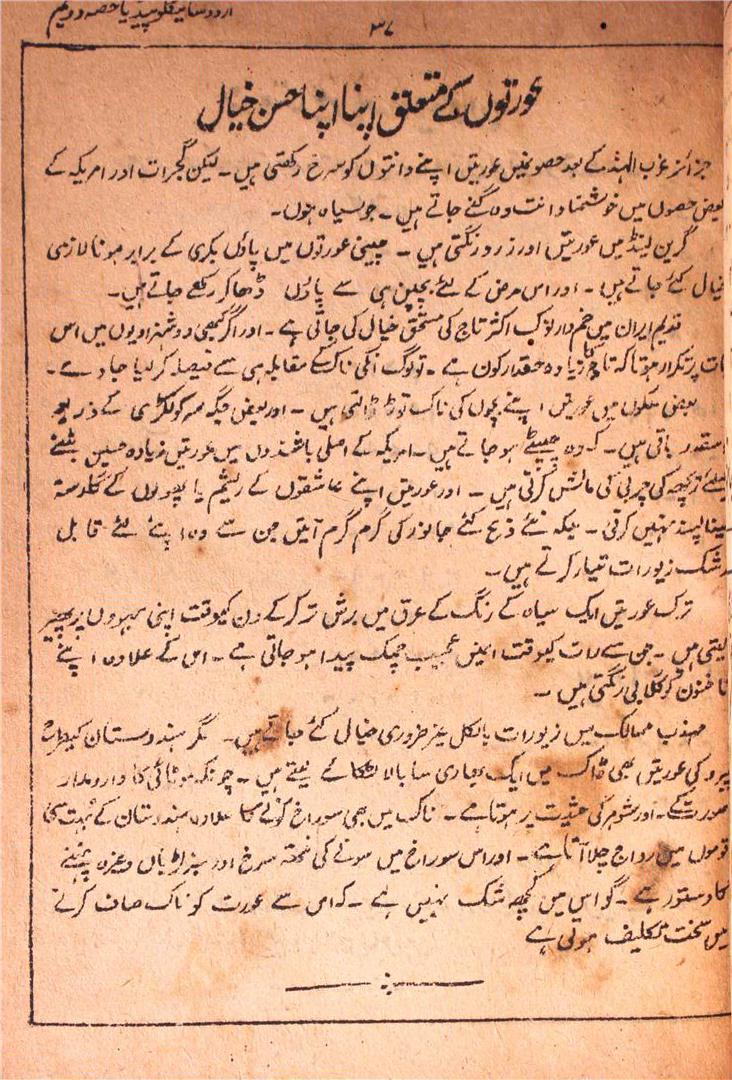 اردو سائیکلوپیڈیا حصہ دوئم
۳۷
عورتوں کے متعلق اپنا اپنا حسن خیال
جزائر غرب الہند کے بعد حصو نمیں عورتیں اپنے دانتوں کو سرخ رکھتی ہیں ۔ لیکن گجرات اور امریکہ کے
بعض حصوں میں خوشنما دانت وہ گنے جاتے ہیں ۔ جو سیاہ ہوں۔
گرین لینڈ میں عورتیں اور زرد رنگتی ہیں ۔ چینی عورتوں میں پاؤں بکری کے برابر ہونا لازمی
خیال کئے جاتے ہیں ۔ اور اس مرض کے لئے بچپن ہی سے پاؤں ڈھاکر رکھے جاتے ہیں۔
قدیم ایران میں خمدار نوک اکثر تاج کی مستحق خیال کی جاتی ہے ۔ اور اگر کبھی دو شہزادیوں میں اس
بات پر تکرار ہوتا کہ تاج کا زیادہ حقدار کون ہے ۔ تو لوگ انکی ناک کے مقابلہ ہی سے فیصلہ کر لیا جاوے ۔
بعض ملکوں میں عورتیں اپنے بچوں کی ناک توڑ ڈالتی ہیں ۔ اور بعض جگہ سر کو لکڑی کے ذریعہ
اسقدر باتی ہیں ۔ کہ وہ چپٹے ہو جاتے ہیں ۔ امریکہ کے اصلی باشندوں میں عورتیں زیادہ حسین بننے
کیلئے ریچھ کی چربی کی مالش کرتی ہیں ۔ اور عورتیں اپنے عاشقوں کے ریشم یا پھولوں کے گلدستہ
لینا پسند نہیں کرتی ۔ بلکہ نئے ذبح کئے جانور کی گرم گرم آنتیں جن سے وہ اپنے لئے قابل
رشک زیورات تیار کرتے ہیں ۔
ترک عورتیں ایک سیاہ کے رنگ کے عرق میں برش تر کر کے دن کیوقت اپنی بھووں پر پھیر
لیتی ہیں ۔ جن سے رات کیوقت انمیں عجیب چمک پیدا ہو جاتی ہے ۔ اس کے علاوہ اپنے
ناخنوں کو گلابی رنگتی ہیں ۔
مہذب ممالک میں زیورات بالکل غیر ضروری خیال کئے جاتے ہیں ۔ مگر ہندوستان کیطرح
پیرو کی عورتیں بھی ناک میں ایک بھاری سا بالا لٹکائے لیتے ہیں ۔ چونکہ موٹائی کا دارومدار
صورت کے ۔ اور شوہر کی حیثیت پر ہوتا ہے ۔ ناک میں بھی سوراخ کرنے کا علاوہ ہندوستان کے بہت سی
قوموں میں رواج چلا آتا ہے ۔ اور اس سوراخ میں سونے کی نتھ سرخ اور سبز لڑیاں وغیرہ پہننے
کا دستور ہے ۔ گو اس میں کچھ شک نہیں ہے ۔ کہ اس سے عورت کو ناک صاف کرنے
میں سخت تکلیف ہوتی ہے